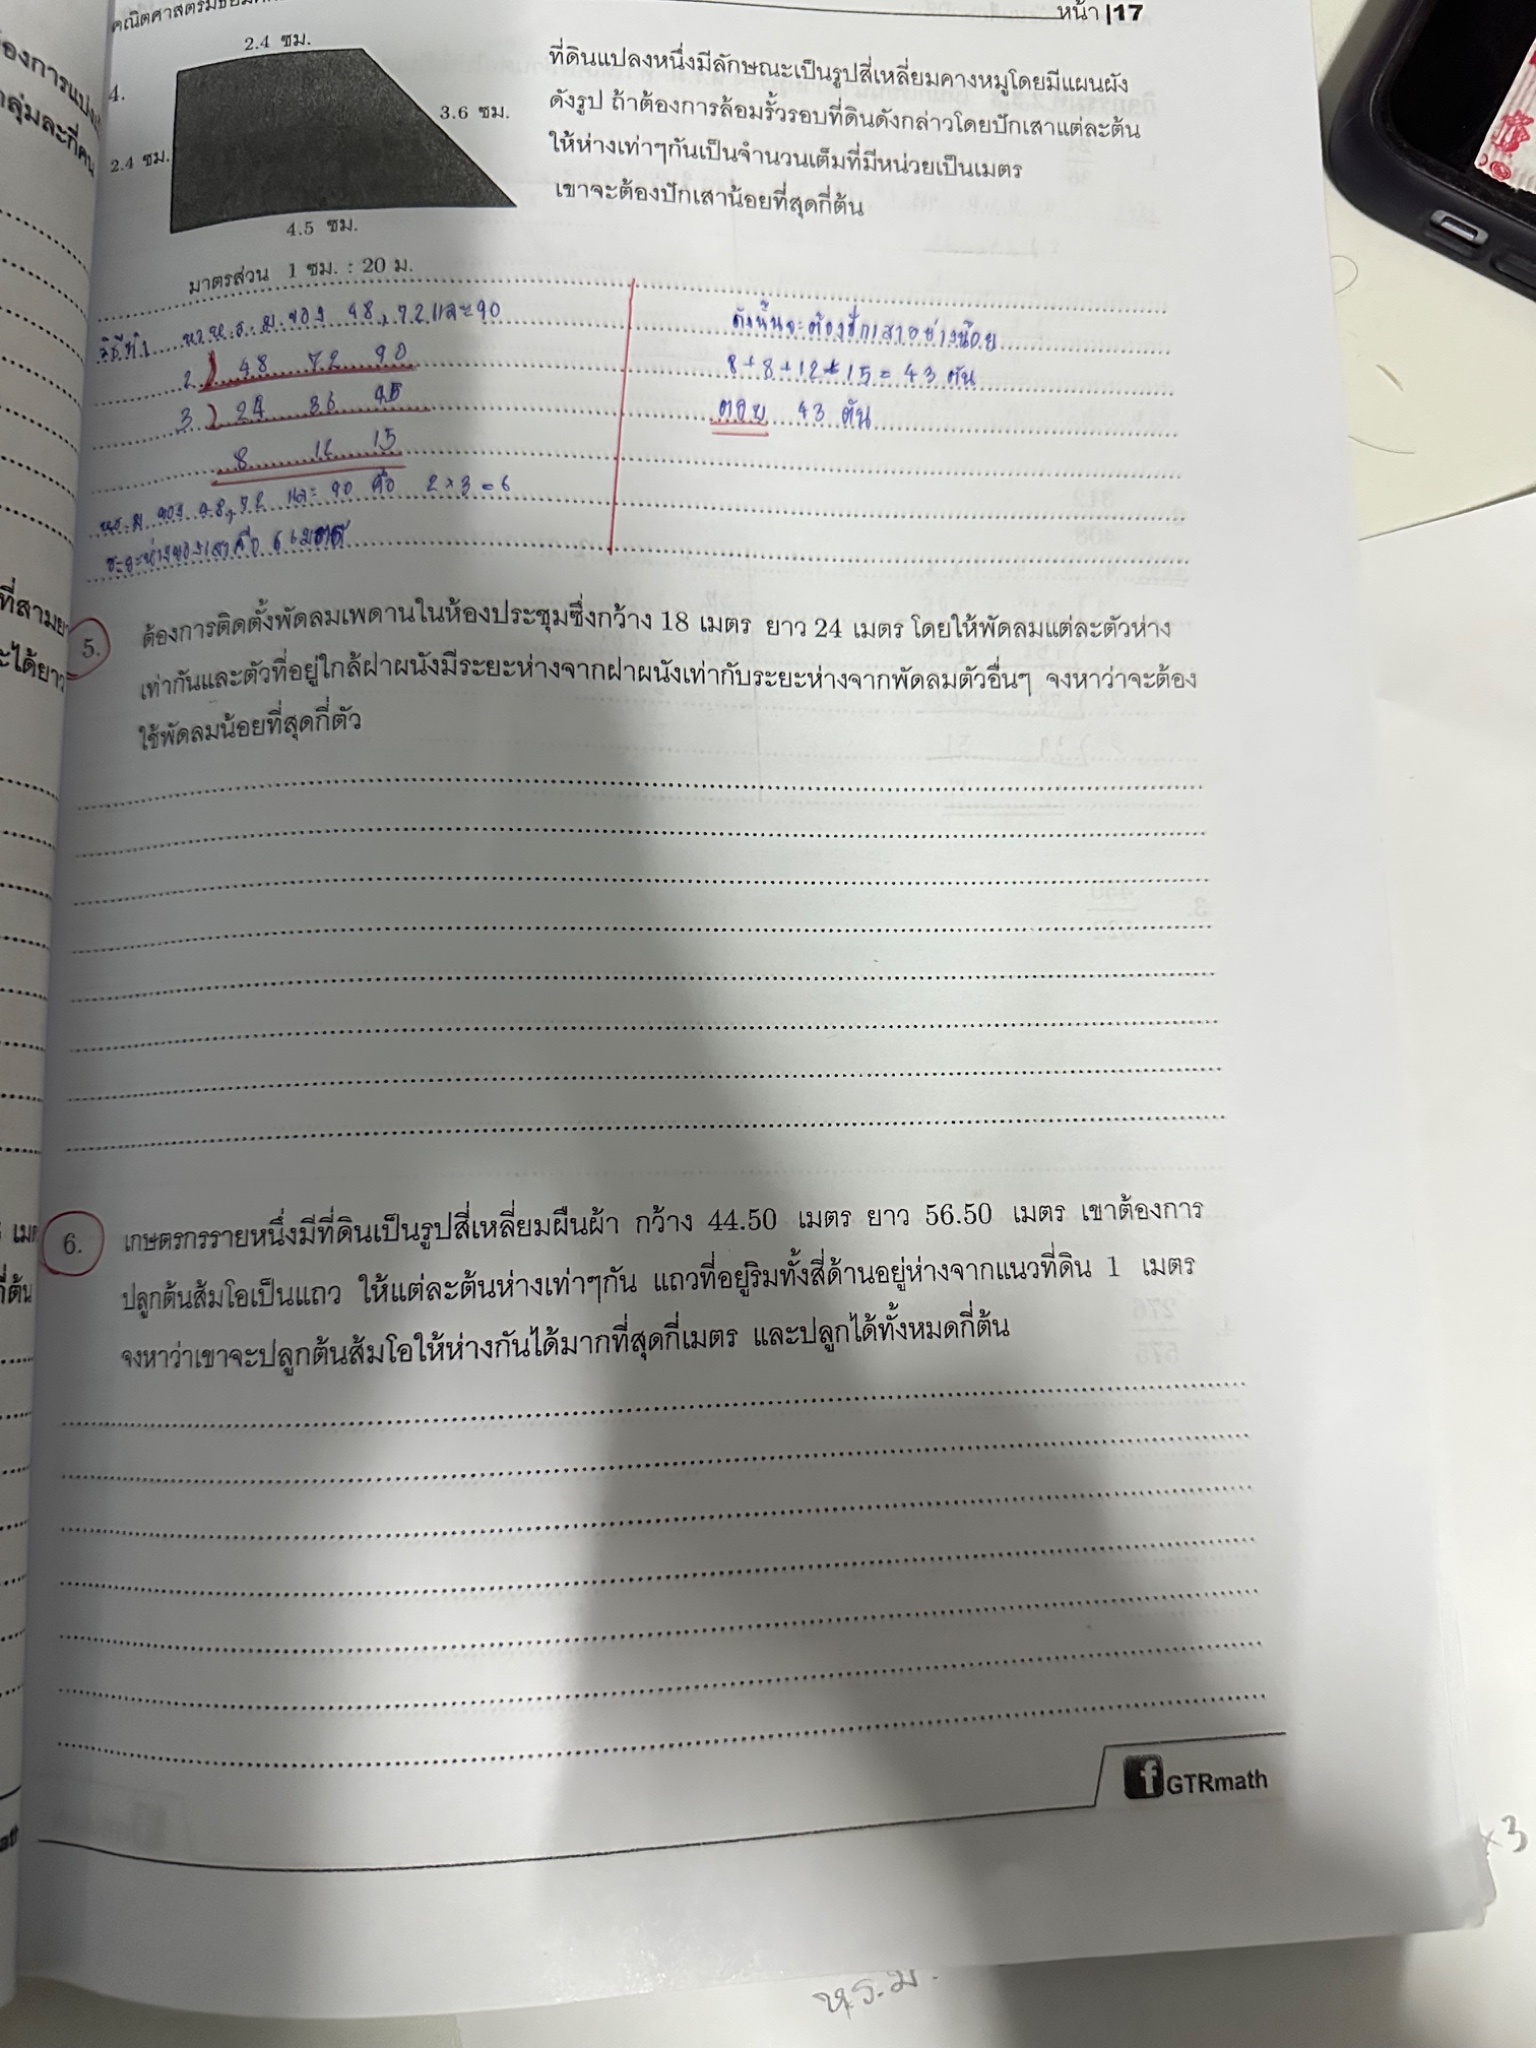 หน้า |17
4.
2.4 ซม.
3.6 ซม.
2.4 ซม.
4.5 ซม.
มาตรส่วน 1 ซม. : 20 ม.
ที่ดินแปลงหนึ่งมีลักษณะเป็นรูปสี่เหลี่ยมคางหมูโดยมีแผนผัง
ดังรูป ถ้าต้องการล้อมรั้วรอบที่ดินดังกล่าวโดยปักเสาแต่ละต้น
ให้ห่างเท่าๆกันเป็นจำนวนเต็มที่มีหน่วยเป็นเมตร
เขาจะต้องปักเสาน้อยที่สุดกี่ต้น
วิธีทำ หา ห.ร.ม ของ 48, 72 และ 90
2) 48 72 90
3) 24 36 45
8 12 15
หร.ม ของ 48, 72 และ 90 คือ 2 × 3 = 6
ระยะห่างของเสาคือ 6 เมตร
ดังนั้นจะต้องปักเสาอย่างน้อย
8 + 8 + 12 + 15 = 43 ต้น
ตอบ 43 ต้น
5. ต้องการติดตั้งพัดลมเพดานในห้องประชุมซึ่งกว้าง 18 เมตร ยาว 24 เมตร โดยให้พัดลมแต่ละตัวห่าง
เท่ากันและตัวที่อยู่ใกล้ฝาผนังมีระยะห่างจากฝาผนังเท่ากับระยะห่างจากพัดลมตัวอื่นๆ จงหาว่าจะต้อง
ใช้พัดลมน้อยที่สุดกี่ตัว
6. เกษตรกรรายหนึ่งมีที่ดินเป็นรูปสี่เหลี่ยมผืนผ้า กว้าง 44.50 เมตร ยาว 56.50 เมตร เขาต้องการ
ปลูกต้นส้มโอเป็นแถว ให้แต่ละต้นห่างเท่าๆกัน แถวที่อยู่ริมทั้งสี่ด้านอยู่ห่างจากแนวที่ดิน 1 เมตร
จงหาว่าเขาจะปลูกต้นส้มโอให้ห่างกันได้มากที่สุดกี่เมตร และปลูกได้ทั้งหมดกี่ต้น
GTRmath
× 3
ห.ร.ม.